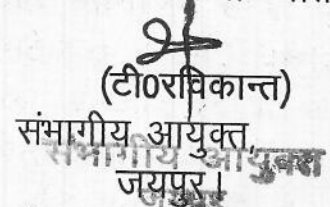 (टी0रविकान्त)
संभागीय आयुक्त,
संभागीय आयुक्त
जयपुर।